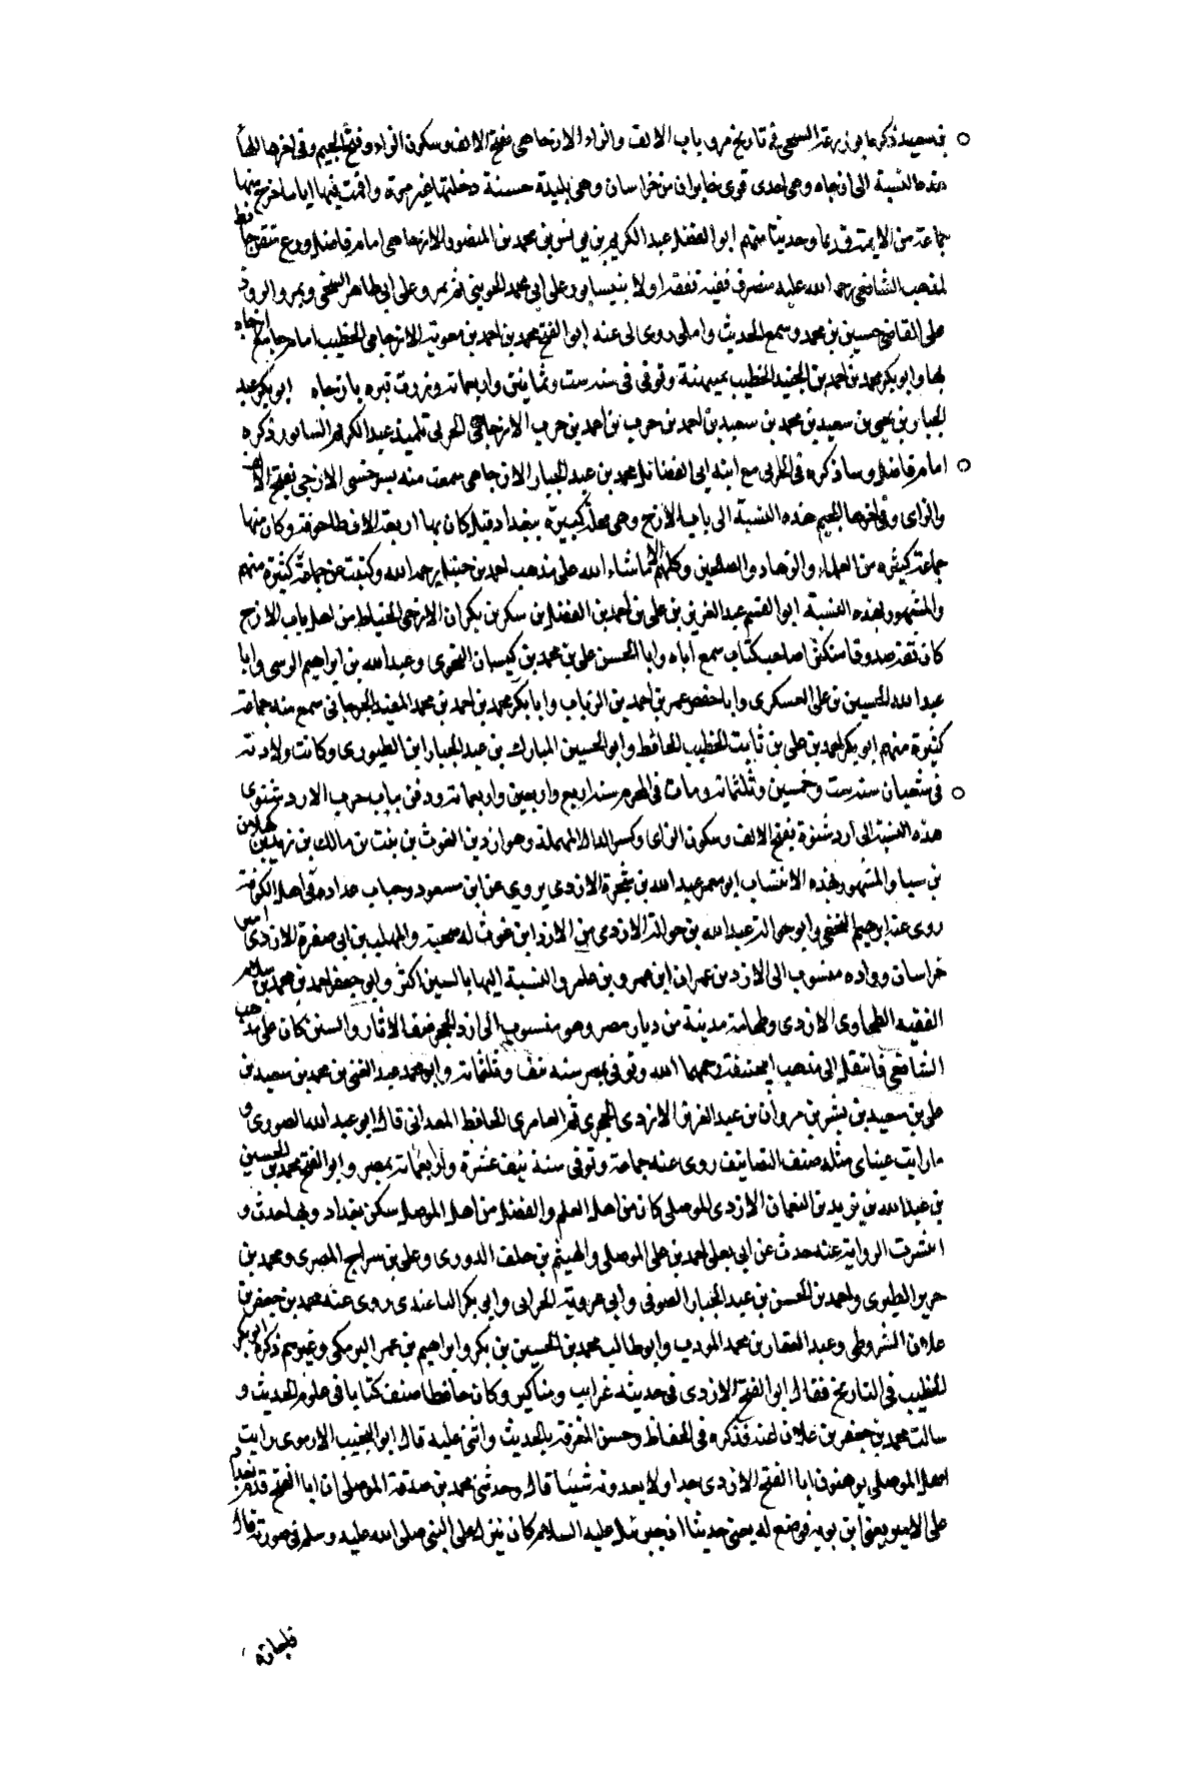 بن سعيد ذكره ابو زرعة السنجي في تاريخ مرو باب الالف والزاء الازجاهي بفتح الالف وسكون الزاء وفتح الجيم وفي اخرها الهاء
هذه النسبة الى ازجاه وهي احدى قرى خابران من خراسان وهي بليدة حسنة دخلتها غير مرة واقمت فيها اياما خرج منها
جماعة من الايمة قديما وحديثا منهم ابو الفضل عبد الكريم بن يونس بن محمد بن المنصور الازجاهي امام فاضل ورع متقن حافظ
لمذهب الشافعي رحمه الله عليه متصرف فقيه تفقه اولا بنيسابور على ابي محمد الجويني ثم بمرو على ابي طاهر السنجي وبمرو الروذ
على القاضي حسين بن محمد وسمع الحديث واملى روى لى عنه ابو الفتح محمد بن احمد بن معوية الازجاهي الخطيب امام جامع ازجاه
بها وابو بكر محمد بن احمد بن الجنيد الخطيب بميهنة وتوفى فى سنة ست وثمانين واربعماية وزرت قبره بازجاه ابو بكر عبد
الجبار بن يحيى بن سعيد بن محمد بن سعيد بن احمد بن حرب بن احمد بن حرب الازجاهي الحربى تلميذ عبد الكريم السابق ذكره
امام فاضل وساذكره فى الحربى مع ابنه ابى الفضائل محمد بن عبد الجبار الازجاهى سمعت منه بسرخس الازجى بفتح الالف
والزاى وفى اخرها الجيم هذه النسبة الى باب الازج وهى محلة كبيرة ببغداد قيل كان بها اربعة الاف طاحونة وكان منها
جماعة كثيرة من العلماء والزهاد والصالحين وكلهم الا ما شاء الله على مذهب احمد بن حنبل رحمه الله وكتبت عن جماعة كثيرة منهم
والمشهور بهذه النسبة ابو القسم عبد العزيز بن على بن احمد بن الفضل بن سكر بن بكران الازجى الخياط من اهل باب الازج
كان ثقة صدوقا مكثرا صاحب كتاب سمع اباه وابا الحسن على بن محمد بن كيسان النحوى وعبد الله بن ابراهيم الوسى وابا
عبد الله الحسين بن على العسكرى وابا حفص عمر بن احمد بن الزيات وابا بكر محمد بن احمد بن محمد المفيد الجرجانى سمع منه جماعة
كثيرة منهم ابو بكر احمد بن على بن ثابت الخطيب الحافظ وابو الحسين المبارك بن عبد الجبار ابن الطيورى وكانت ولادته
فى شعبان سنة ست وخمسين وثلثماية ومات فى المحرم سنة اربع واربعين واربعماية ودفن بباب حرب الازدشنوى
هذه النسبة الى ازد شنوة بفتح الالف وسكون الزاى وكسر الدال المهملة وهو ازد بن الغوث بن بنت بن مالك بن زيد بن كهلان
بن سبا والمشهور بهذه الانتساب ابو معمر عبد الله بن سخبرة الازدى يروى عن ابن مسعود وخباب عداده فى اهل الكوفة
روى عنه ابرهيم النخعى وابو حوالة عبد الله بن حوالة الازدى من الازد ابن غوث له صحبة والمهلب بن ابى صفرة الازدى امير
خراسان وولده منسوب الى الازد بن عمران ابن عمرو بن عامر والنسبة اليها بالسين اكثر وابو جعفر احمد بن محمد بن سلامة
الفقيه الطحاوى الازدى وطحا مدينة من ديار مصر وهو منسوب الى ازد الحجر صنف الاثار والسنن كان على مذهب
الشافعى فانتقل الى مذهب ابى حنيفة رحمهما الله وتوفى بمصر سنة نيف وثلثماية وابو محمد عبد الغنى بن محمد بن سعيد بن
على بن سعيد بن بشر بن مروان بن عبد العزيز الازدى الحجرى ثم العامرى الحافظ المعدانى قال ابو عبد الله الصورى و
ما رايت عيناى مثله صنف التصانيف روى عنه جماعة وتوفى سنة نيف عشرة واربعماية بمصر وابو الفتح محمد بن الحسين
بن عبد الله بن يزيد بن النعمان الازدى الموصلى كان من اهل العلم والفضل من اهل الموصل سكن بغداد وبها حدث و
انتشرت الرواية عنه حدث عن ابى يعلى احمد بن على الموصلى والهيثم بن خلف الدورى وعلى بن سراج المصرى ومحمد بن
جرير الطبرى واحمد بن الحسن بن عبد الجبار الصوفى وابى عروبة الحرانى وابى بكر الباغندى روى عنه محمد بن جعفر بن
علان الشروطى وعبد الغفار بن محمد المودب وابو طالب محمد بن الحسين بن بكر وابراهيم بن عمر البرمكى وغيرهم ذكره ابو بكر
الخطيب فى التاريخ فقال ابو الفتح الازدى فى حديثه غرايب ومناكير وكان حافظا صنف كتابا فى علوم الحديث و
سالت محمد بن جعفر بن علان عنه فذكره فى الحفاظ وحسن المعرفة بالحديث واثنى عليه قال ابو النجيب الارموى رايت
اهل الموصل يوهنون ابا الفتح الازدى جدا ولا يعدونه شيئا قال وحدثنى محمد بن صدقة الموصلى ان ابا الفتح قدم بغداد
على الامير يعنى ابن بويه فوضع له يعنى حديثا ان جبرئيل عليه السلام كان ينزل على النبى صلى الله عليه وسلم فى صورته قال
فاجازه